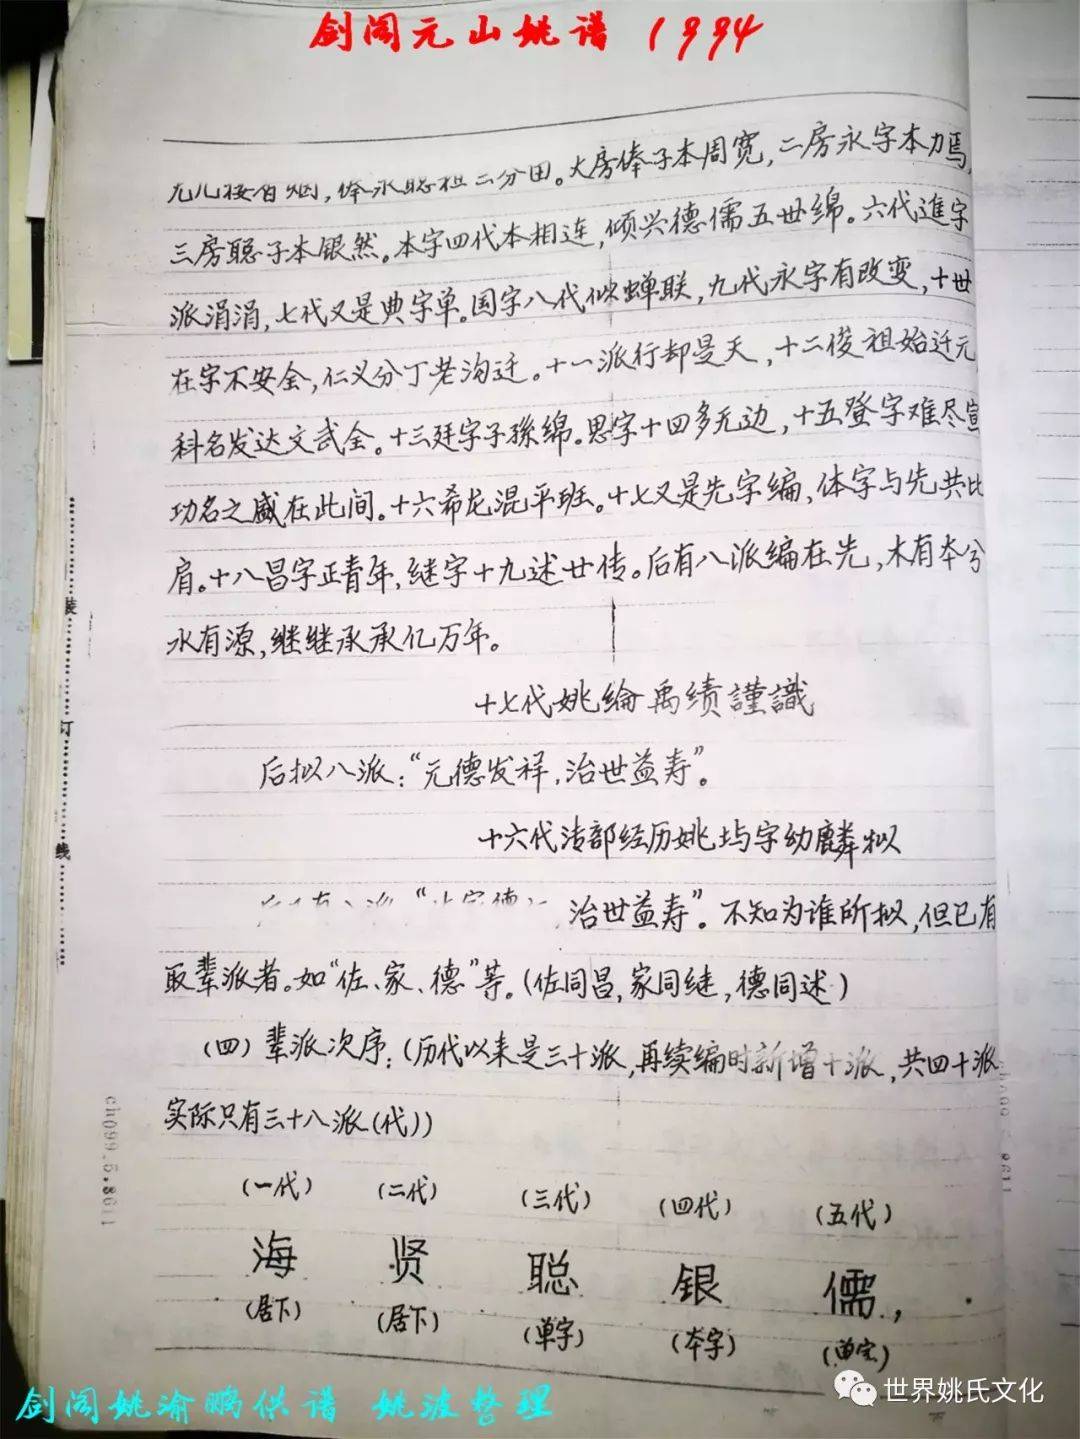 剑阁元山姚谱 1994
三分田。大房俸子本周宽，二房永字本力焉，
三房聪子本银然。本字四代本相连，倾兴德儒五世绵。六代進字
派涓涓，七代又是典字单。国字八代似蝉联，九代永字有改变，十世
在字不安全，仁义分丁老沟迁。十一派行却是天，十二俊祖始迁元
科名发达文武全。十三廷字子孫绵。思字十四多无边，十五登字难尽宣
功名之盛在此间。十六希龙混平班。十七又是先字编，体字与先共比
肩。十八昌字正青年，继字十九述廿传。后有八派编在先，木有本兮
水有源，继继承承亿万年。
十七代姚綸禹绩謹識
后拟八派：“元德发祥，治世益寿”。
十六代法部经历姚坞字幼麟拟
治世益寿”。不知为谁所拟，但已有
取辈派者。如“佐、家、德”等。（佐同昌，家同继，德同述）
（四）辈派次序：（历代以来是三十派，再续编时新增十派，共四十派
实际只有三十八派（代））
（一代） （二代） （三代） （四代） （五代）
海 贤 聪 银 儒，
（居下） （居下） （单字） （本字） （单字）
装
订
线
ch099.5.8611
剑阁姚渝鹏供谱 姚波整理
世界姚氏文化